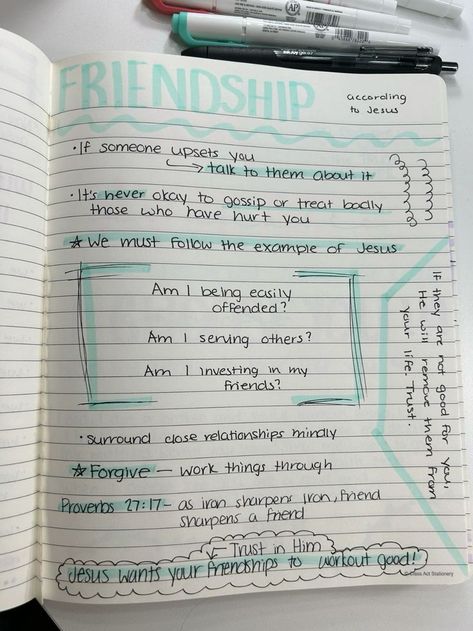 FRIENDSHIP
according
to Jesus
• If someone upsets you
→ talk to them about it
• It's never okay to gossip or treat badly
those who have hurt you
☆ We must follow the example of Jesus
Am I being easily
offended?
Am I serving others?
Am I investing in my
friends?
If they are not good for you,
He will remove them from
your life. Trust.
• surround close relationships mindly
☆ Forgive – work things through
Proverbs 27:17 – as iron sharpens iron, friend
sharpens a friend
Trust in Him
Jesus wants your friendships to workout good!
Class Act Stationery